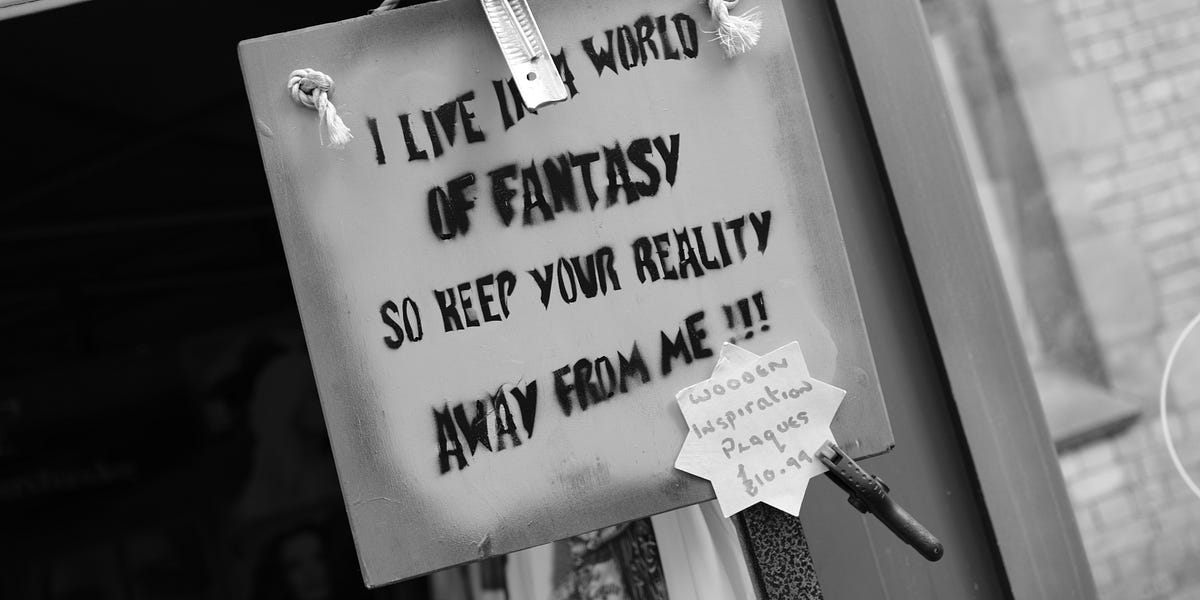 I LIVE IN A WORLD
OF FANTASY
SO KEEP YOUR REALITY
AWAY FROM ME !!!
WOODEN
INSPIRATION
PLAQUES
£10.99